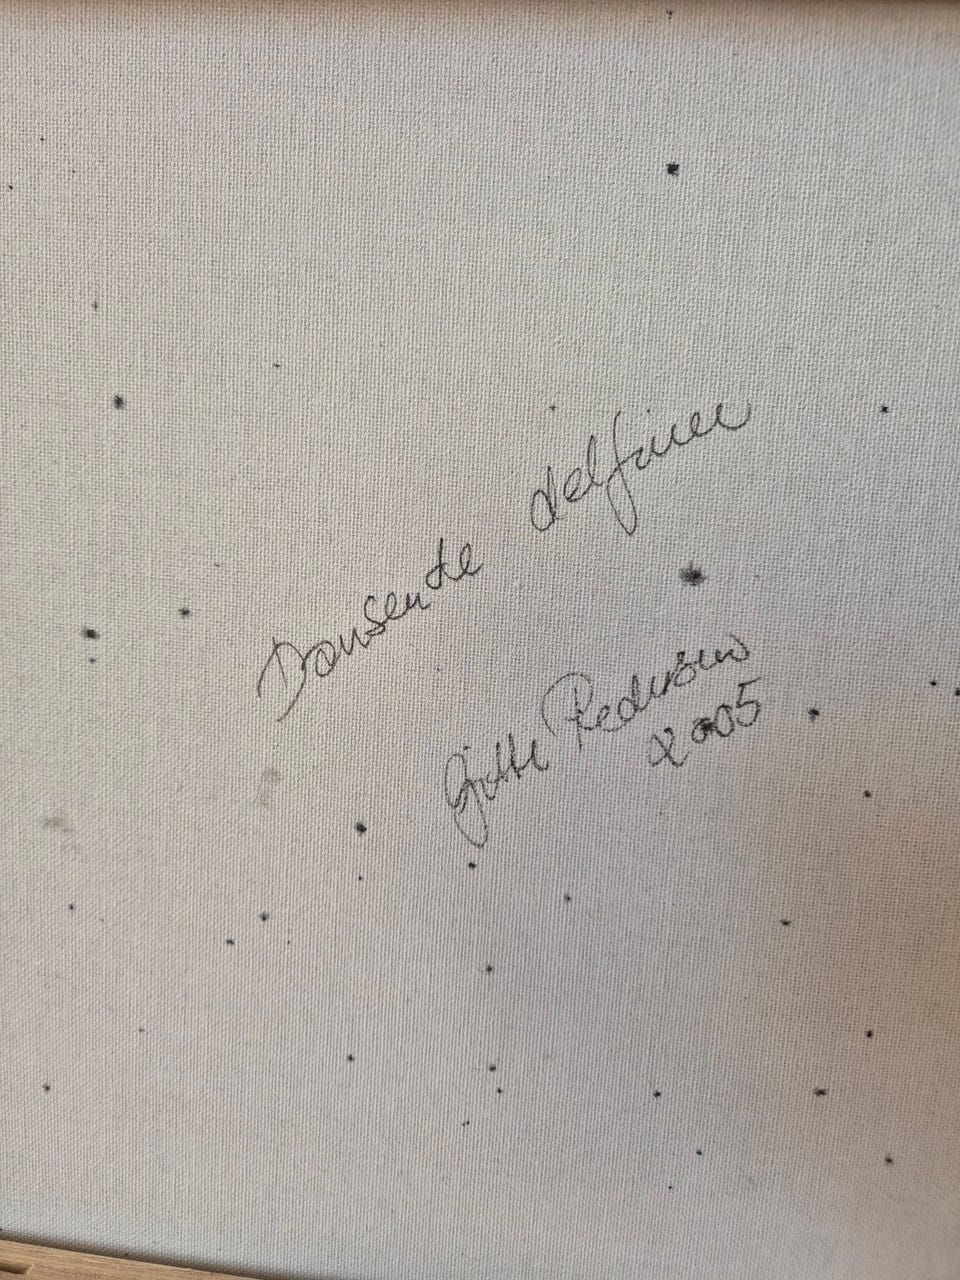 Dansende delfiner
Gitte Pedersen
2005